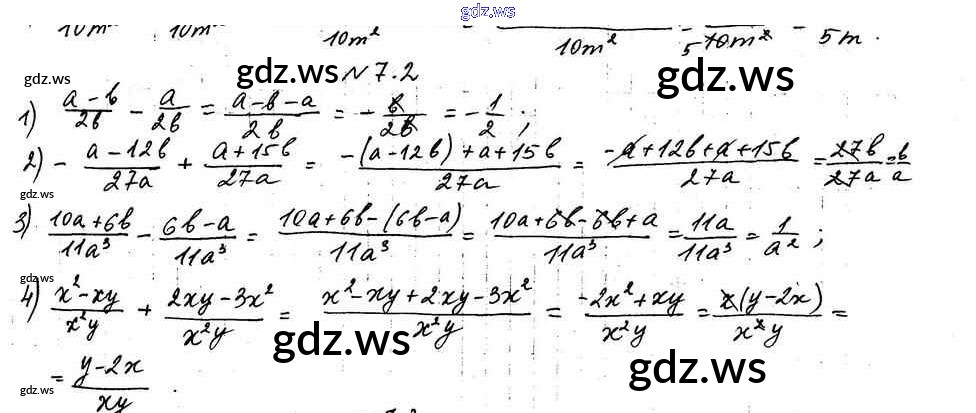 gdz.ws
10m 10m 10m² 10m² 5 10m² 5m.
gdz.ws gdz.ws gdz.ws
№ 7.2
1) (a-b)/2b - a/2b = (a-b-a)/2b = - b/2b = - 1/2 ;
2) - (a-12b)/27a + (a+15b)/27a = (-(a-12b)+a+15b)/27a = (-a+12b+a+15b)/27a = 27b/27a = b/a
gdz.ws gdz.ws
3) (10a+6b)/11a³ - (6b-a)/11a³ = (10a+6b-(6b-a))/11a³ = (10a+6b-6b+a)/11a³ = 11a/11a³ = 1/a² ;
gdz.ws
4) (x²-xy)/x²y + (2xy-3x²)/x²y = (x²-xy+2xy-3x²)/x²y = (-2x²+xy)/x²y = x(y-2x)/x²y =
gdz.ws gdz.ws
= (y-2x)/xy .
gdz.ws